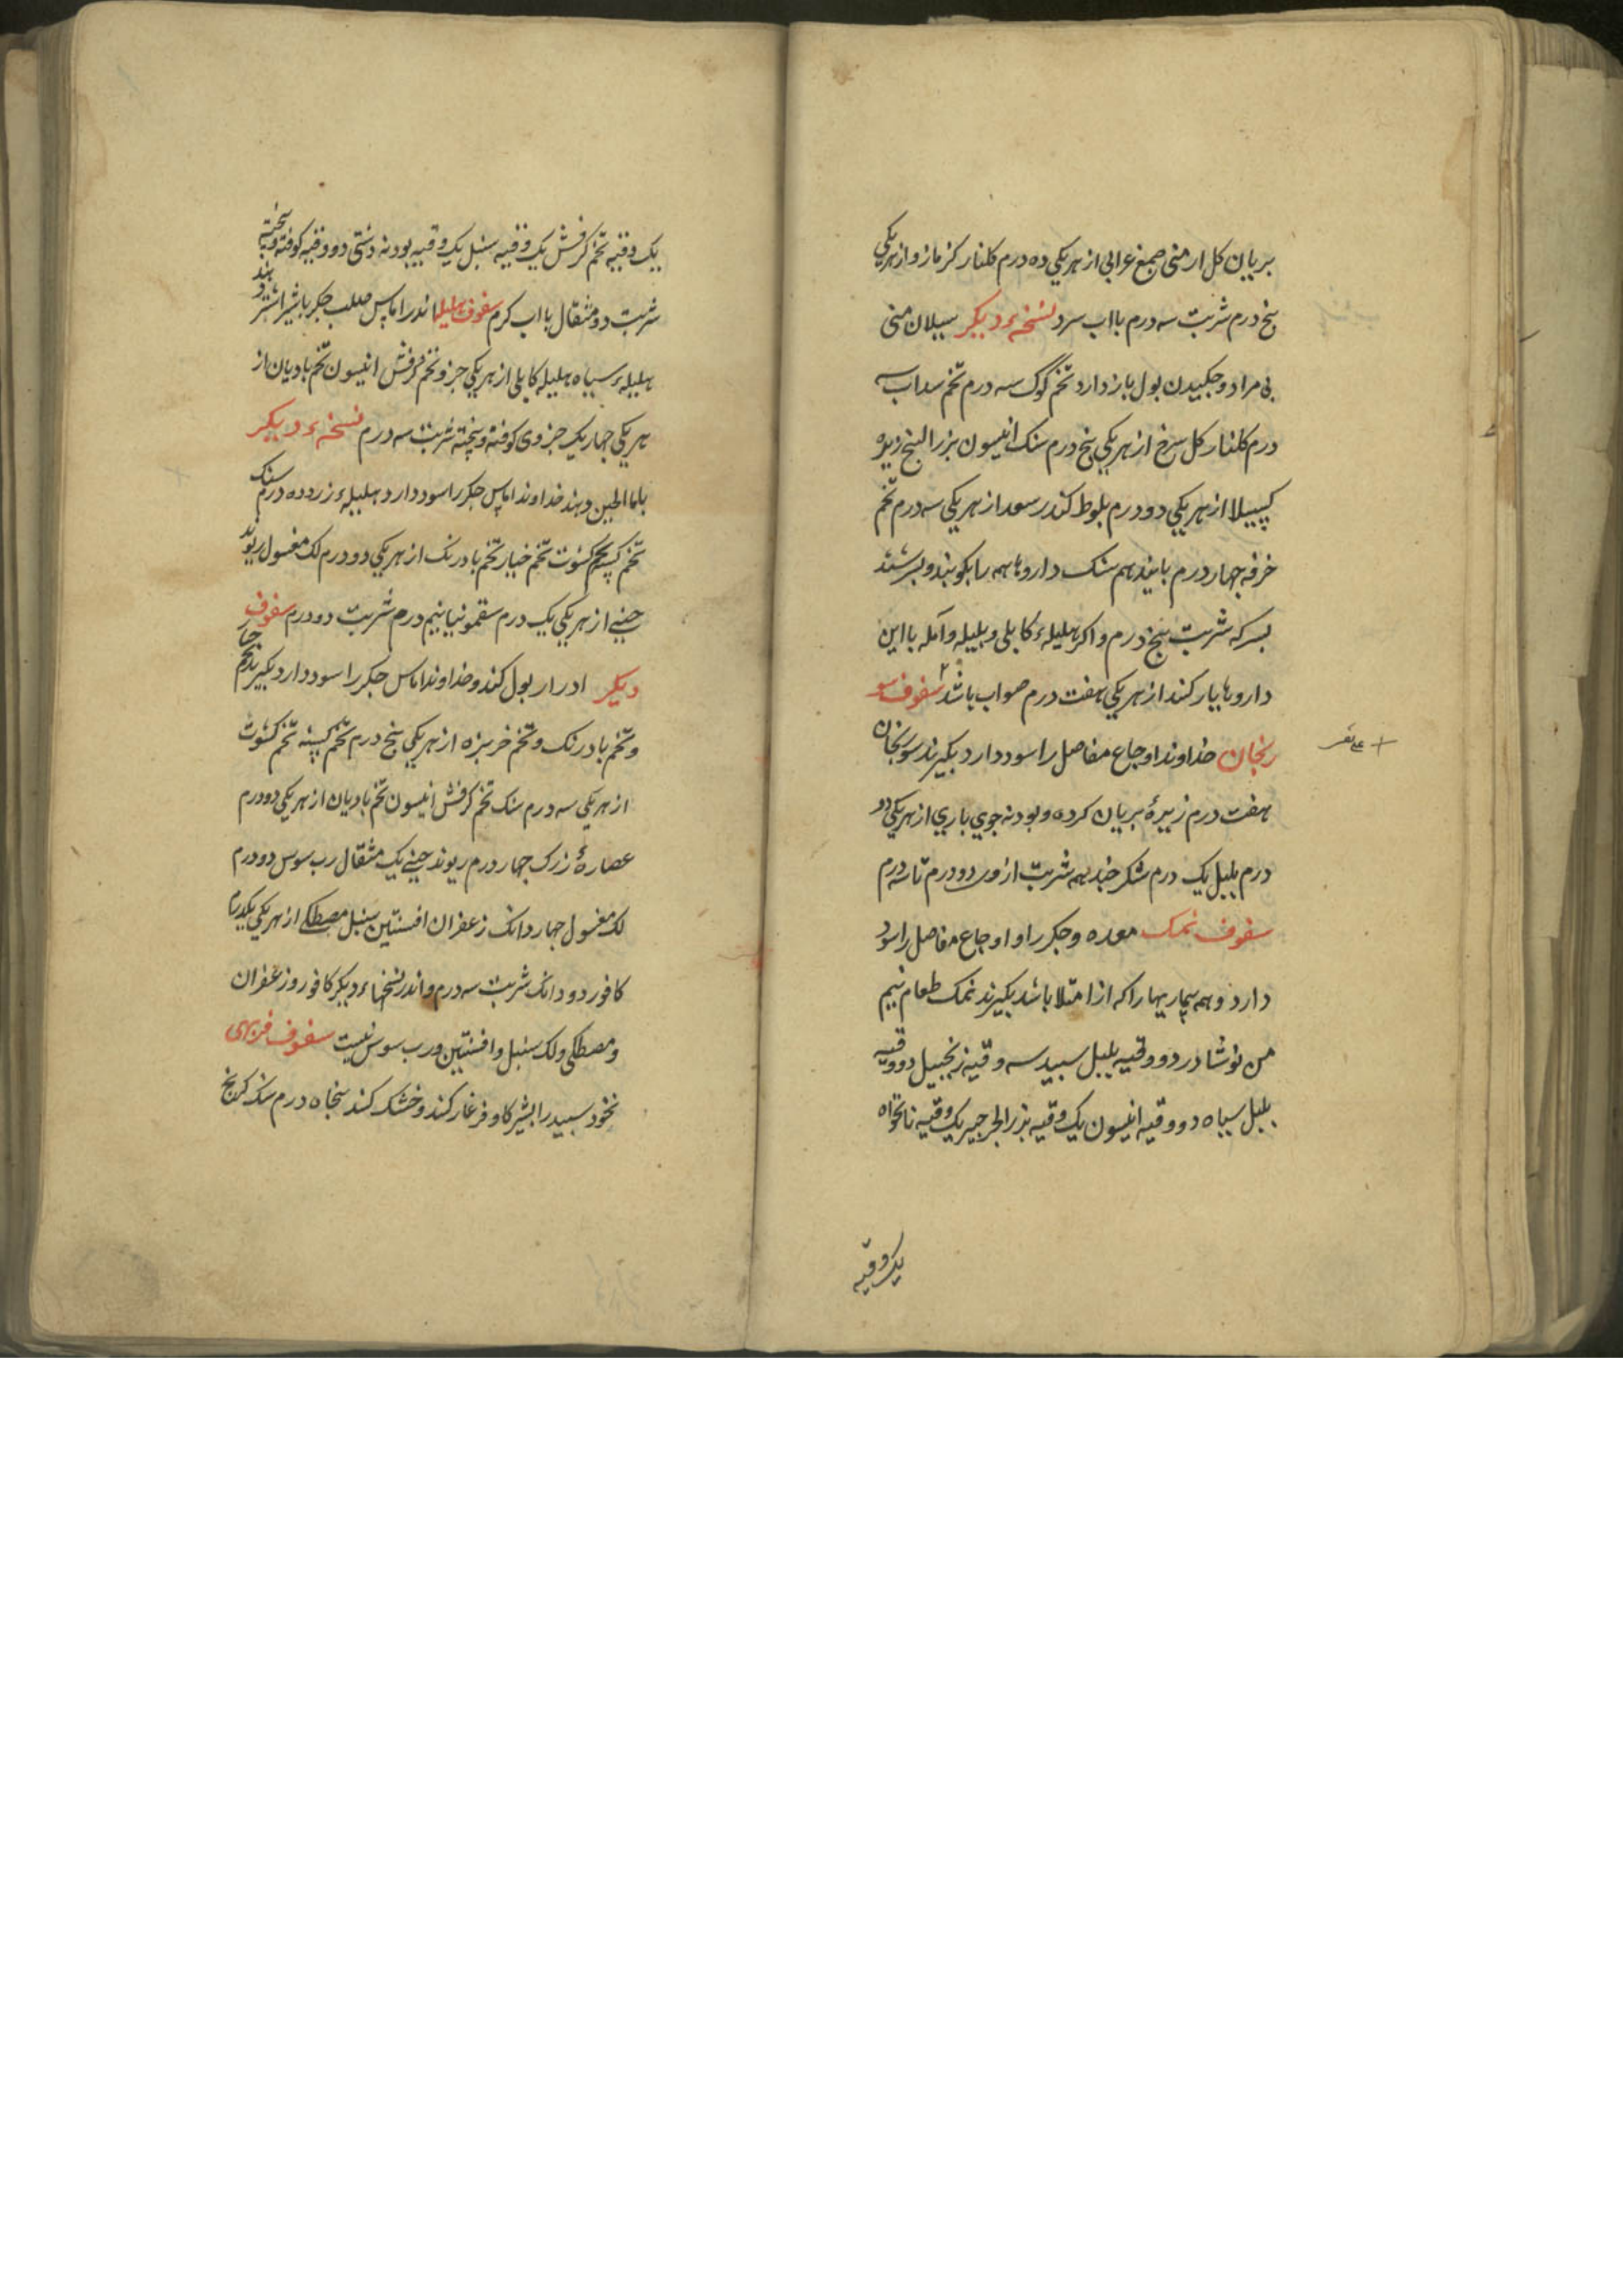 بریان کل ارمنی صمغ عرابی از هریکی ده درم کلنار کزمازو از هریکی
پنج درم شربت سه درم بااب سرد نسخهٔ دیکر سیلان منی
بی مراد و چکیدن بول باز دارد تخم کوک سه درم تخم سداب سه
درم کلنار کل سرخ از هریکی پنج درم سنک انیسون بزرالبنج زیره
کپیلا از هریکی دو درم بلوط کندر سعد از هریکی سه درم تخم
خرفه چهار درم بانید هم سنک داروها همه را بکوبند و بسرشند
بسرکه شربت پنج درم و اکر هلیلهٔ کابلی و بلیله و آمله بااین
داروها یار کند از هریکی هفت درم صواب باشد سفوف سو
رنجان خداوند اوجاع مفاصل را سود دارد بکیرند سورنجان
هفت درم زیرهٔ بریان کرده و بودنه جوی باری از هریکی دو
درم بلبل یک درم شکر چند همه شربت ازوی دو درم تا سه درم
سفوف نمک معده و جکر را و اوجاع مفاصل را سود
دارد و همه بیماریها را که از امتلا باشد بکیرند نمک طعام نیم
من نوشادر دو وقیه بلبل سپید سه وقیه زنجبیل دو وقیه
بلبل سیاه دو وقیه انیسون یک وقیه بزرالجرجیر یک وقیه نانخواه
یک وقیه
یک وقیه تخم کرفش یک وقیه سنبل یک وقیه بودنه دشتی دو وقیه کوفته و بیخته
شربت دو مثقال بااب کرم سفوف هلیله اندر اماس صلب جکر باشیر اشتر دهند
هلیلهٔ سیاه هلیله کابلی از هریکی جزو تخم کرفش انیسون تخم بادیان از
هریکی چهار یک جزوی کوفته و بیخته شربت سه درم نسخهٔ دیکر
باماالجبن دهند خداوند اماس جکر را سود دارد هلیلهٔ زرد ده درم سنک
تخم کسنه تخم کشوت تخم خیار تخم بادرنک از هریکی دو درم لک مغسول ریوند
چینی از هریکی یک درم سقمونیا نیم درم شربت دو درم سفوف
دیکر ادرار بول کند و خداوند اماس جکر را سود دارد بکیرند تخم خیار
و تخم بادرنک و تخم خربزه از هریکی پنج درم تخم کسنه تخم کشوت
از هریکی سه درم سنک تخم کرفش انیسون تخم بادیان از هریکی دو درم
عصارهٔ زرک چهار درم ریوند چینی یک مثقال رب سوس دو درم
لک مغسول چهار دانک زعفران افسنتین سنبل مصطکی از هریکی یکدرم
کافور دو دانک شربت سه درم و اندر نسخهاء دیکر کافور و زعفران
و مصطکی و لک سنبل و افسنتین و رب سوس نیست سفوف فربهی
نخود سپید را بشیر کاو فرغار کند و خشک کند پنجاه درم سنک کرنج